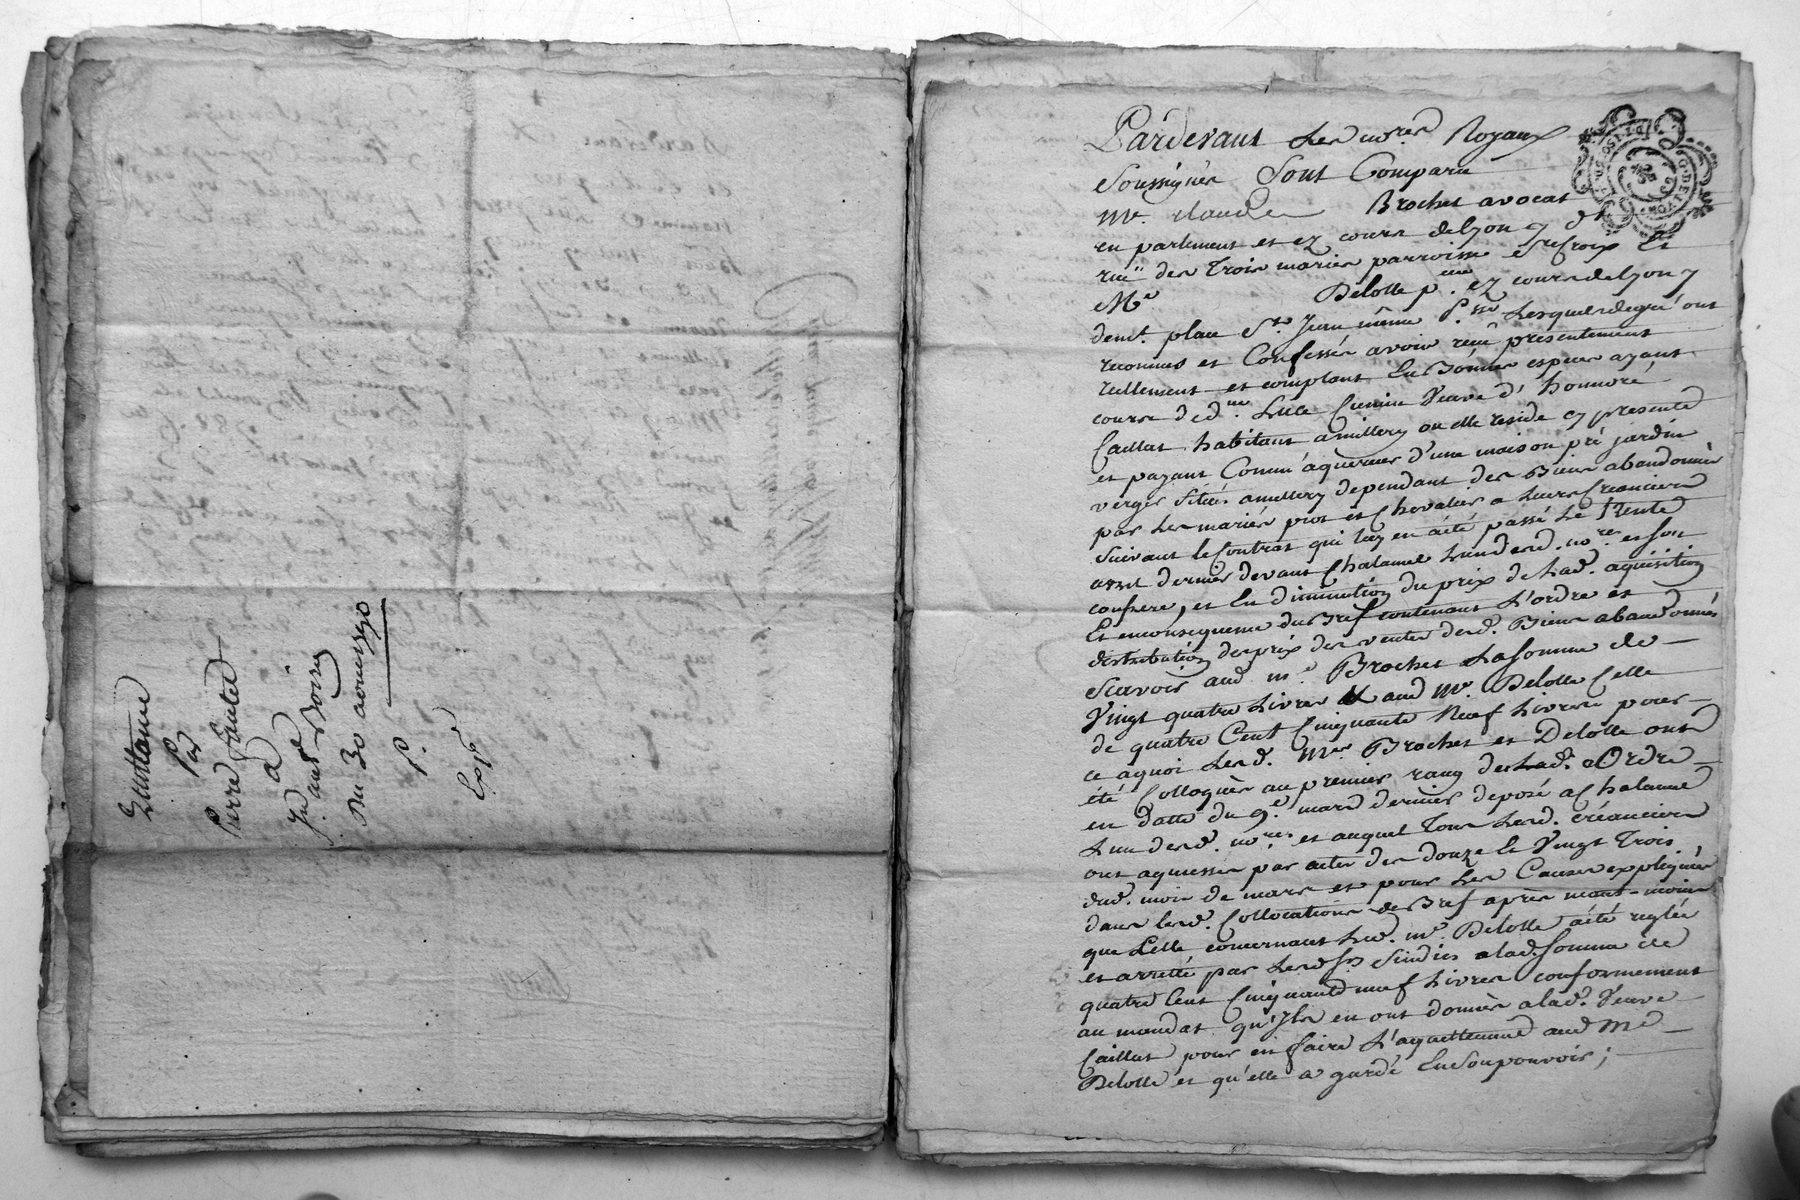 Quittance
Par
Pierre Gautel
a
Jn andé Boiron
Du 30 aoust 1790
P.
Expé
Pardevant Les no.res Royaux
Soussignés Sont Comparu
me. claude Brochet avocat
en parlement et ez cours de Lyon y dt
rue des Trois maries parroisse Ste Croix Et
Me Delolle p.eur ez cours de Lyon y
demt. place St. Jean même p.sse Lesquels de gré ont
reconnus et Confessés avoir recû présentement
réellement et comptant En Bonnes especes ayant
cours de d.me Luce Cuenin Veuve d'honnoré
Caillat habitant a millery ou elle reside cy presente
et payant Comm' aquereur d'une maison pré jardin
verger Situés a millery dependant des Biens abandonnés
par Les mariés prot et Chevalier a Leurs Creanciers
Suivant le Contrat qui luy en a été passé Le Trente
avril dernier devant Chalamel L'un desd. no.res et son
confrere, et En diminution du prix de Lad. aquisition
Et en consequence du Bref contenant L'ordre et
distribution des prix des ventes desd. Biens abandonnés
Scavoir aud. me. Brochet La Somme de
Vingt quatre Livres & aud. Me. Delolle Celle
de quatre Cent Cinquante Neuf Livres pour
ce a quoi Lesd. Mes. Brochet et Delolle ont
été Colloqués au premier rang de Lad. Ordre
en datte du 9.e mars dernier deposé a Chalamel
L'un desd. no.res et auquel Tous Lesd. Créanciers
ont aquiescés par actes des douze Et Vingt Trois
dud. mois de mars et pour Les Causes expliquées
dans lesd. Collocations de Bref après neant-moins
que Celle concernant Led. me. Delolle a été reglée
et arretté par Lesd. Srs Sindics a lad. Somme de
quatre Cent Cinquante neuf Livres conformement
au mandat qu'Ils en ont donnés a lad. Veuve
Caillat pour en faire L'aquittement aud. Me
Delolle et qu'elle a gardé En Son pouvoir ;